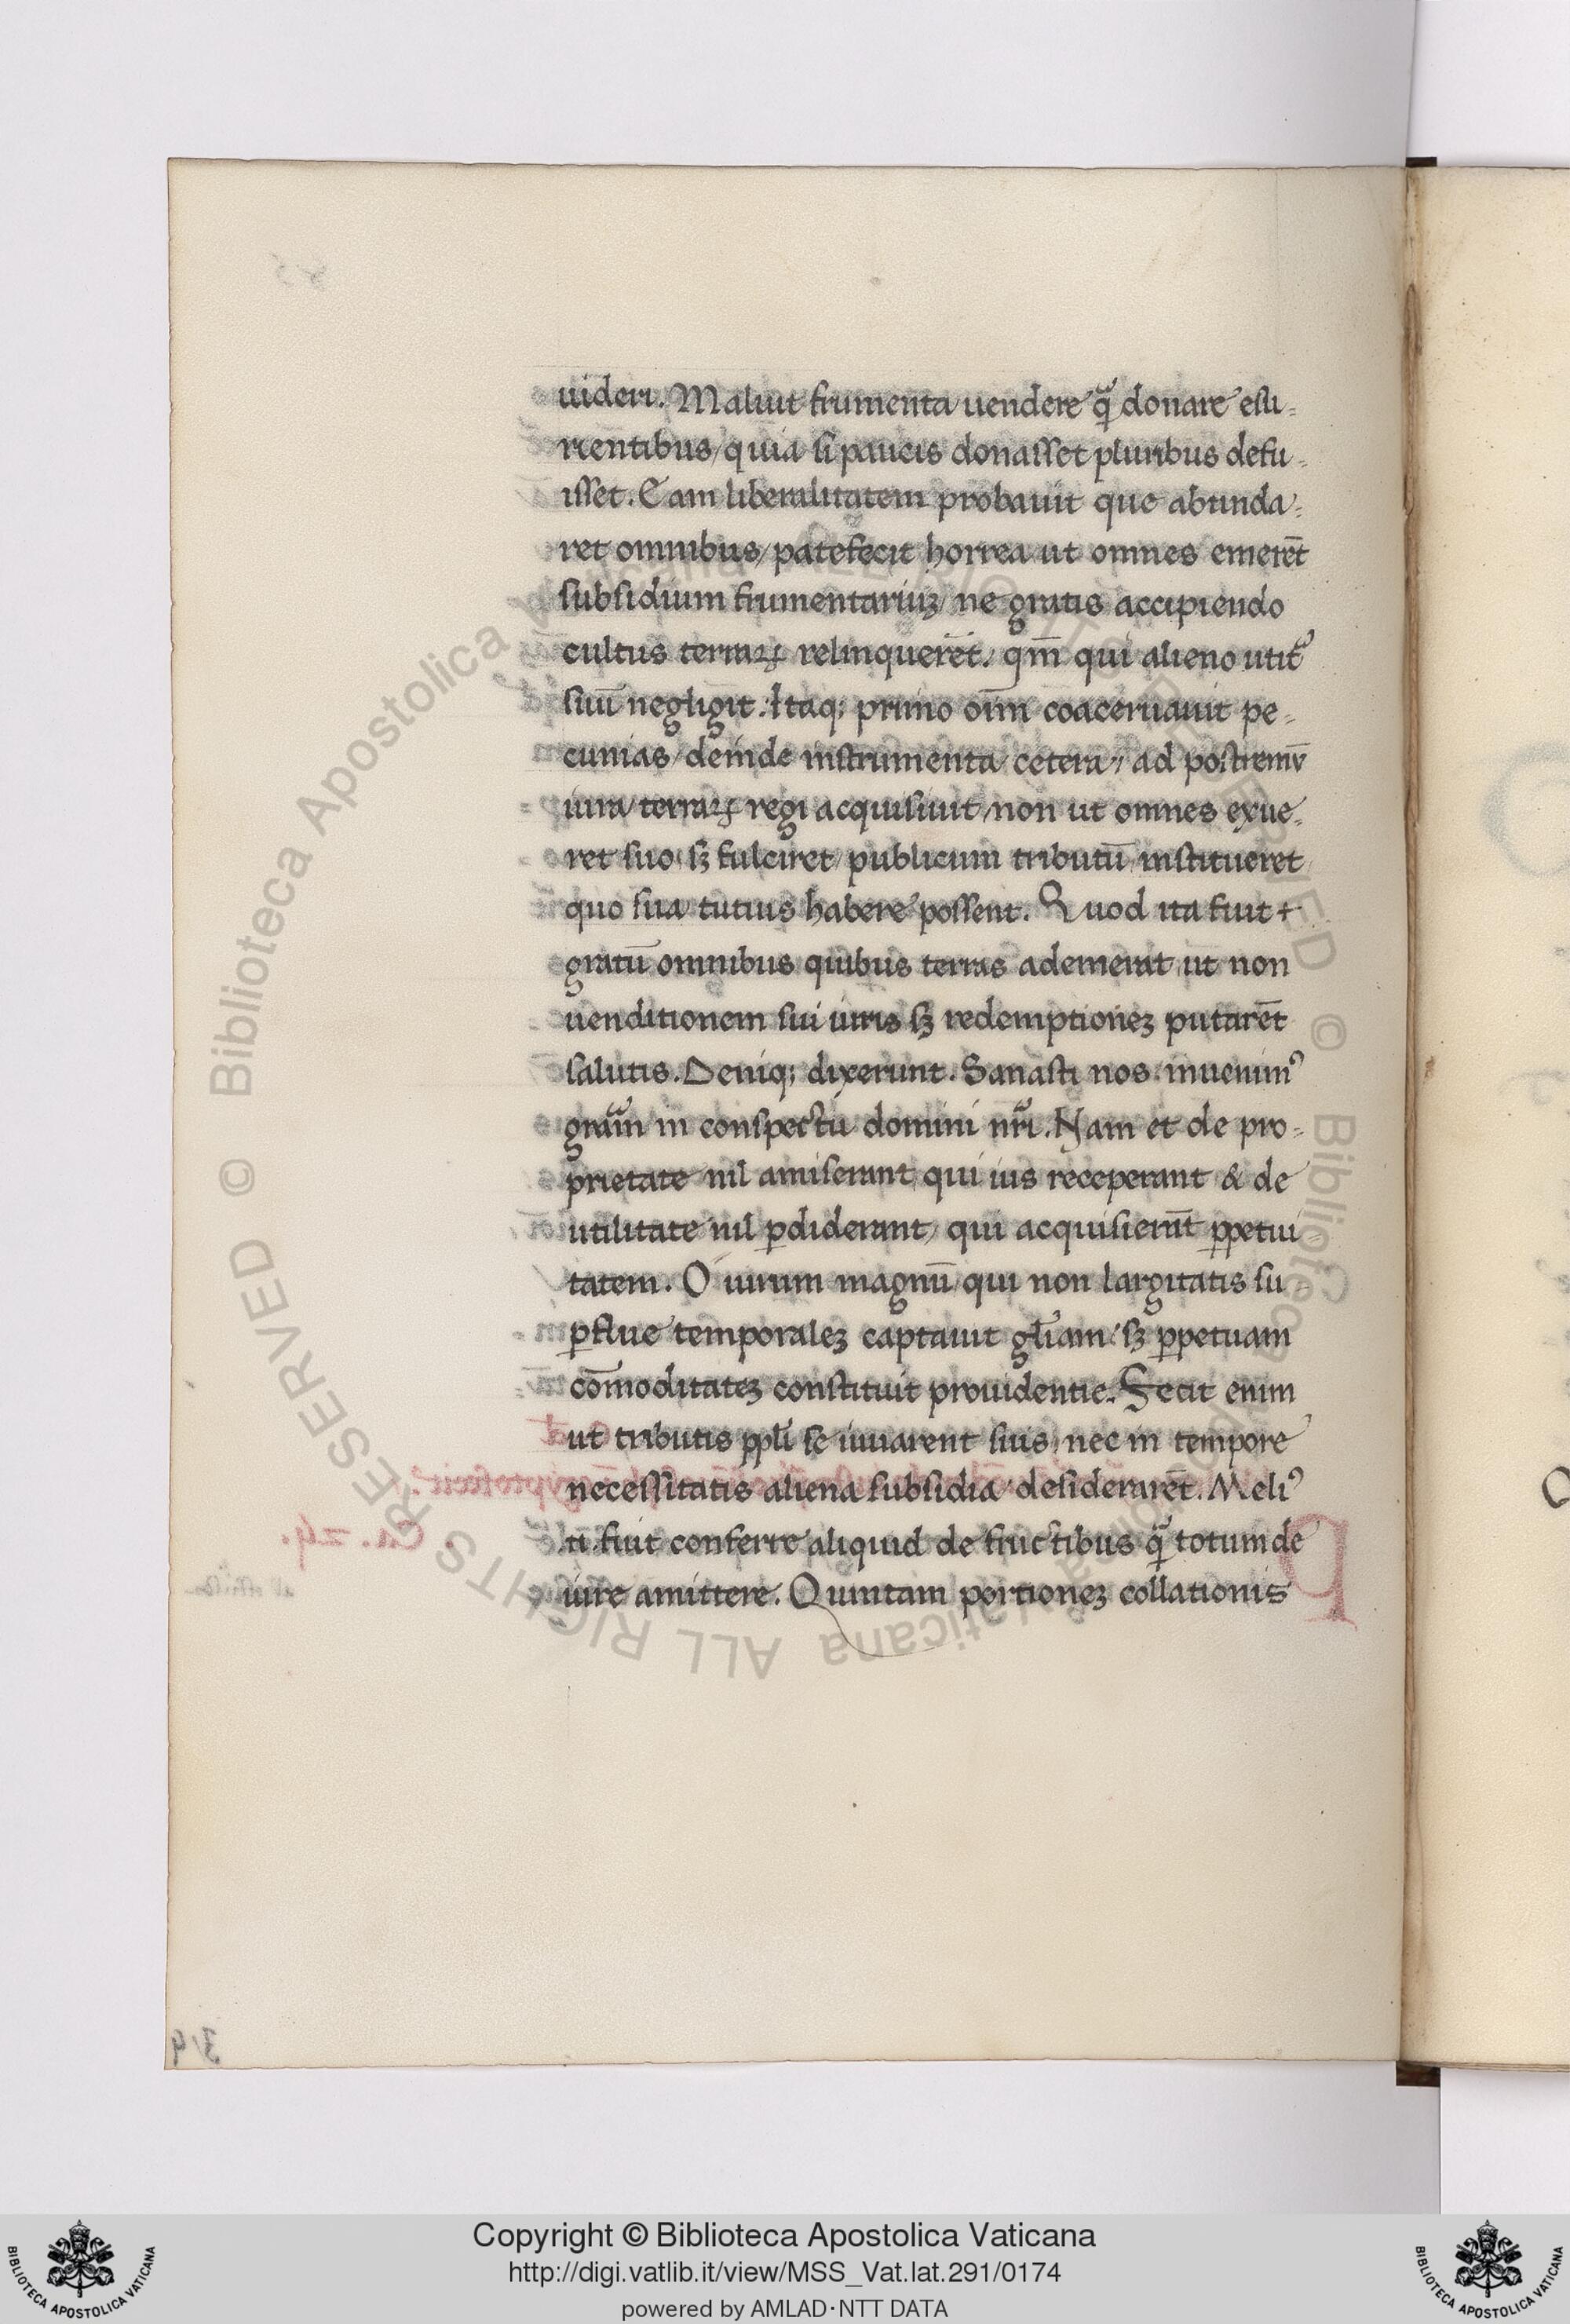 uideri. Maluit frumenta uendere q̃ donare esu-
rientibus/quia si paucis donasset pluribus defu-
isset. Eam liberalitatem probauit que abunda-
ret omnibus/patefecit horrea ut omnes emerēt
subsidium frumentariuȝ/ne gratis accipiendo
cultus terraꝝ relinquerēt. qm̄ qui alieno utit̃
suū negligit. Itaq; primo oīm coaceruauit pe-
cunias/deinde instrumenta/cetera/ad postremū
iura/terraꝝ regi acquisiuit/non ut omnes exue-
ret suo sȝ fulciret/publicum tributū institueret
quo sua tutius habere possent. Quod ita fuit
gratū omnibus quibus terras ademerat ut non
uenditionem sui iuris sȝ redemptioneȝ putarēt
salutis. Deniq; dixerunt. Sanasti nos. inuenimꝰ
gram̃ in conspectu domini nr̃i. Nam et de pro-
prietate nil amiserant qui ius receperant & de
utilitate nil ꝑdiderant/qui acquisierūt ꝑpetui
tatem. O uirum magnū qui non largitatis su
ꝑflue temporaleȝ captauit gl̃iam. sȝ ꝑpetuam
cōmoditateȝ constituit prouidentie. Fecit enim
ut tributis ppl̃i se iuuarent suis nec in tempore
necessitatis aliena subsidia desiderarēt. Meliꝰ
.n. fuit conferre aliquid de fructibus q̃ totum de
iure amittere. Quintam portioneȝ collationis
Copyright © Biblioteca Apostolica Vaticana
http://digi.vatlib.it/view/MSS_Vat.lat.291/0174
powered by AMLAD·NTT DATA
BIBLIOTECA APOSTOLICA VATICANA
BIBLIOTECA APOSTOLICA VATICANA